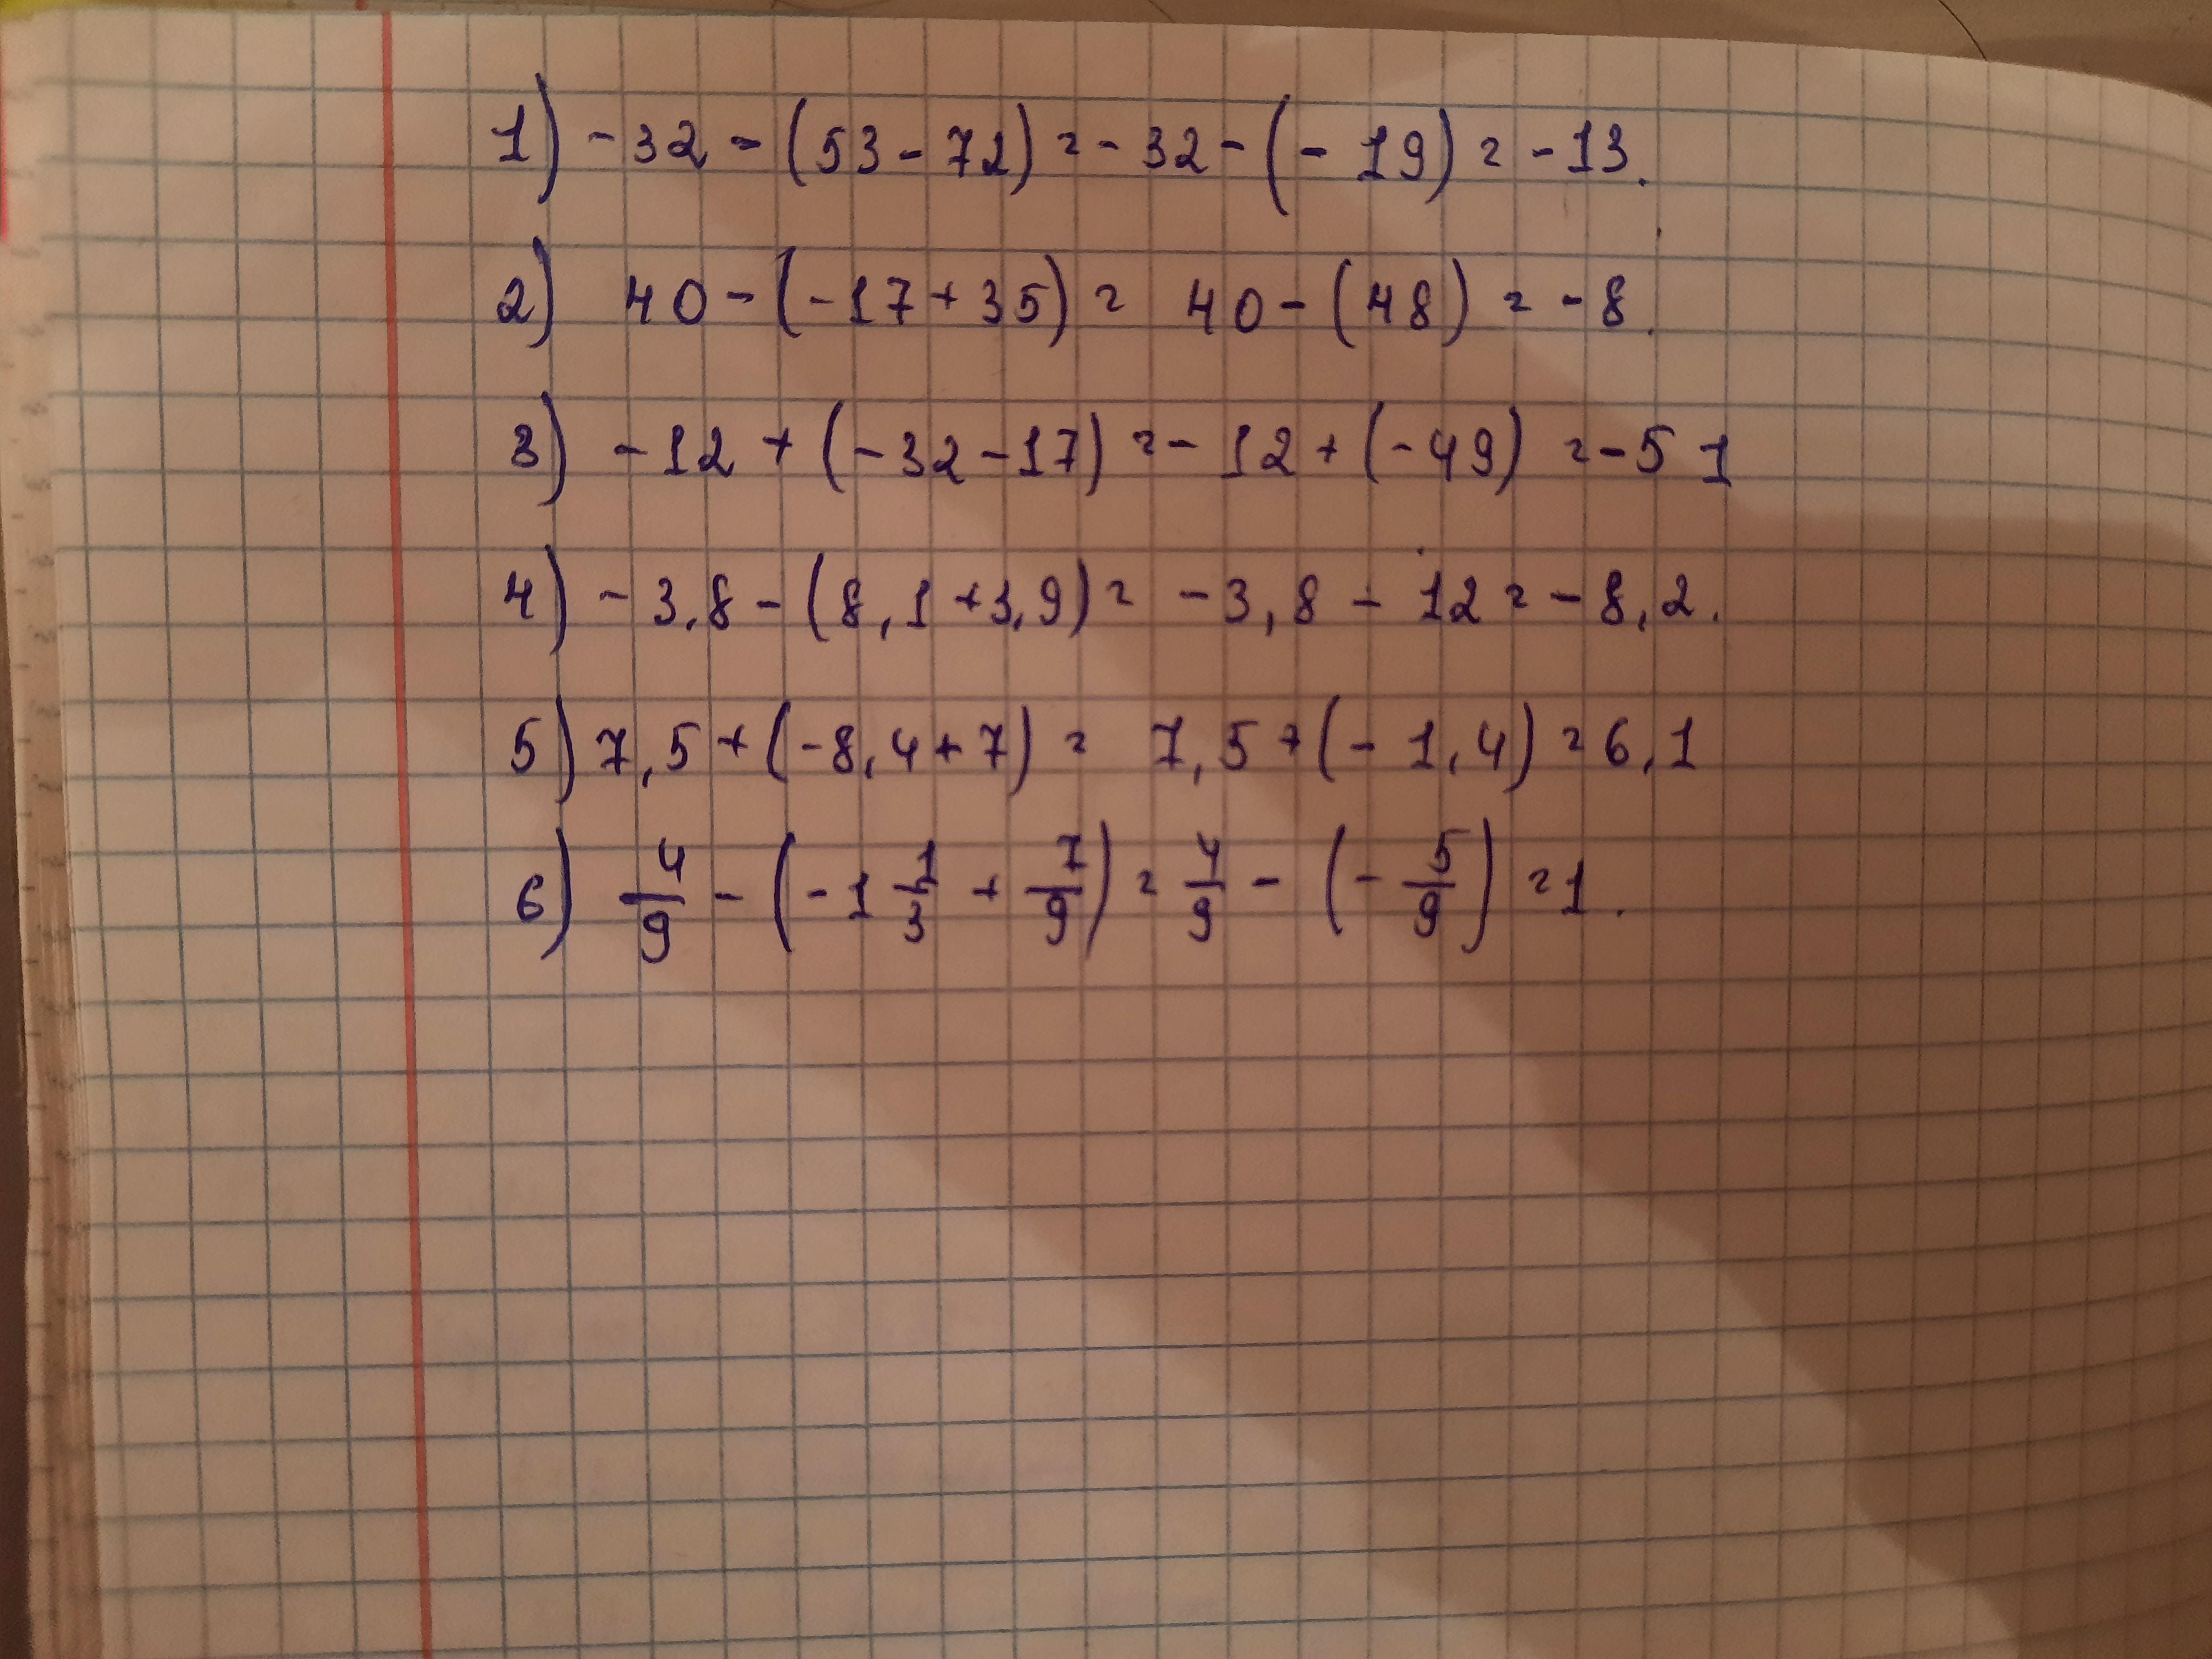 1) -32 - (53 - 72) = -32 - (-19) = -13.
2) 40 - (-17 + 35) = 40 - (48) = -8.
3) -12 + (-32 - 17) = -12 + (-49) = -51
4) -3,8 - (8,1 + 3,9) = -3,8 - 12 = -8,2.
5) 7,5 + (-8,4 + 7) = 7,5 + (-1,4) = 6,1
6) 4/9 - (-1 1/3 + 7/9) = 4/9 - (-5/9) = 1.